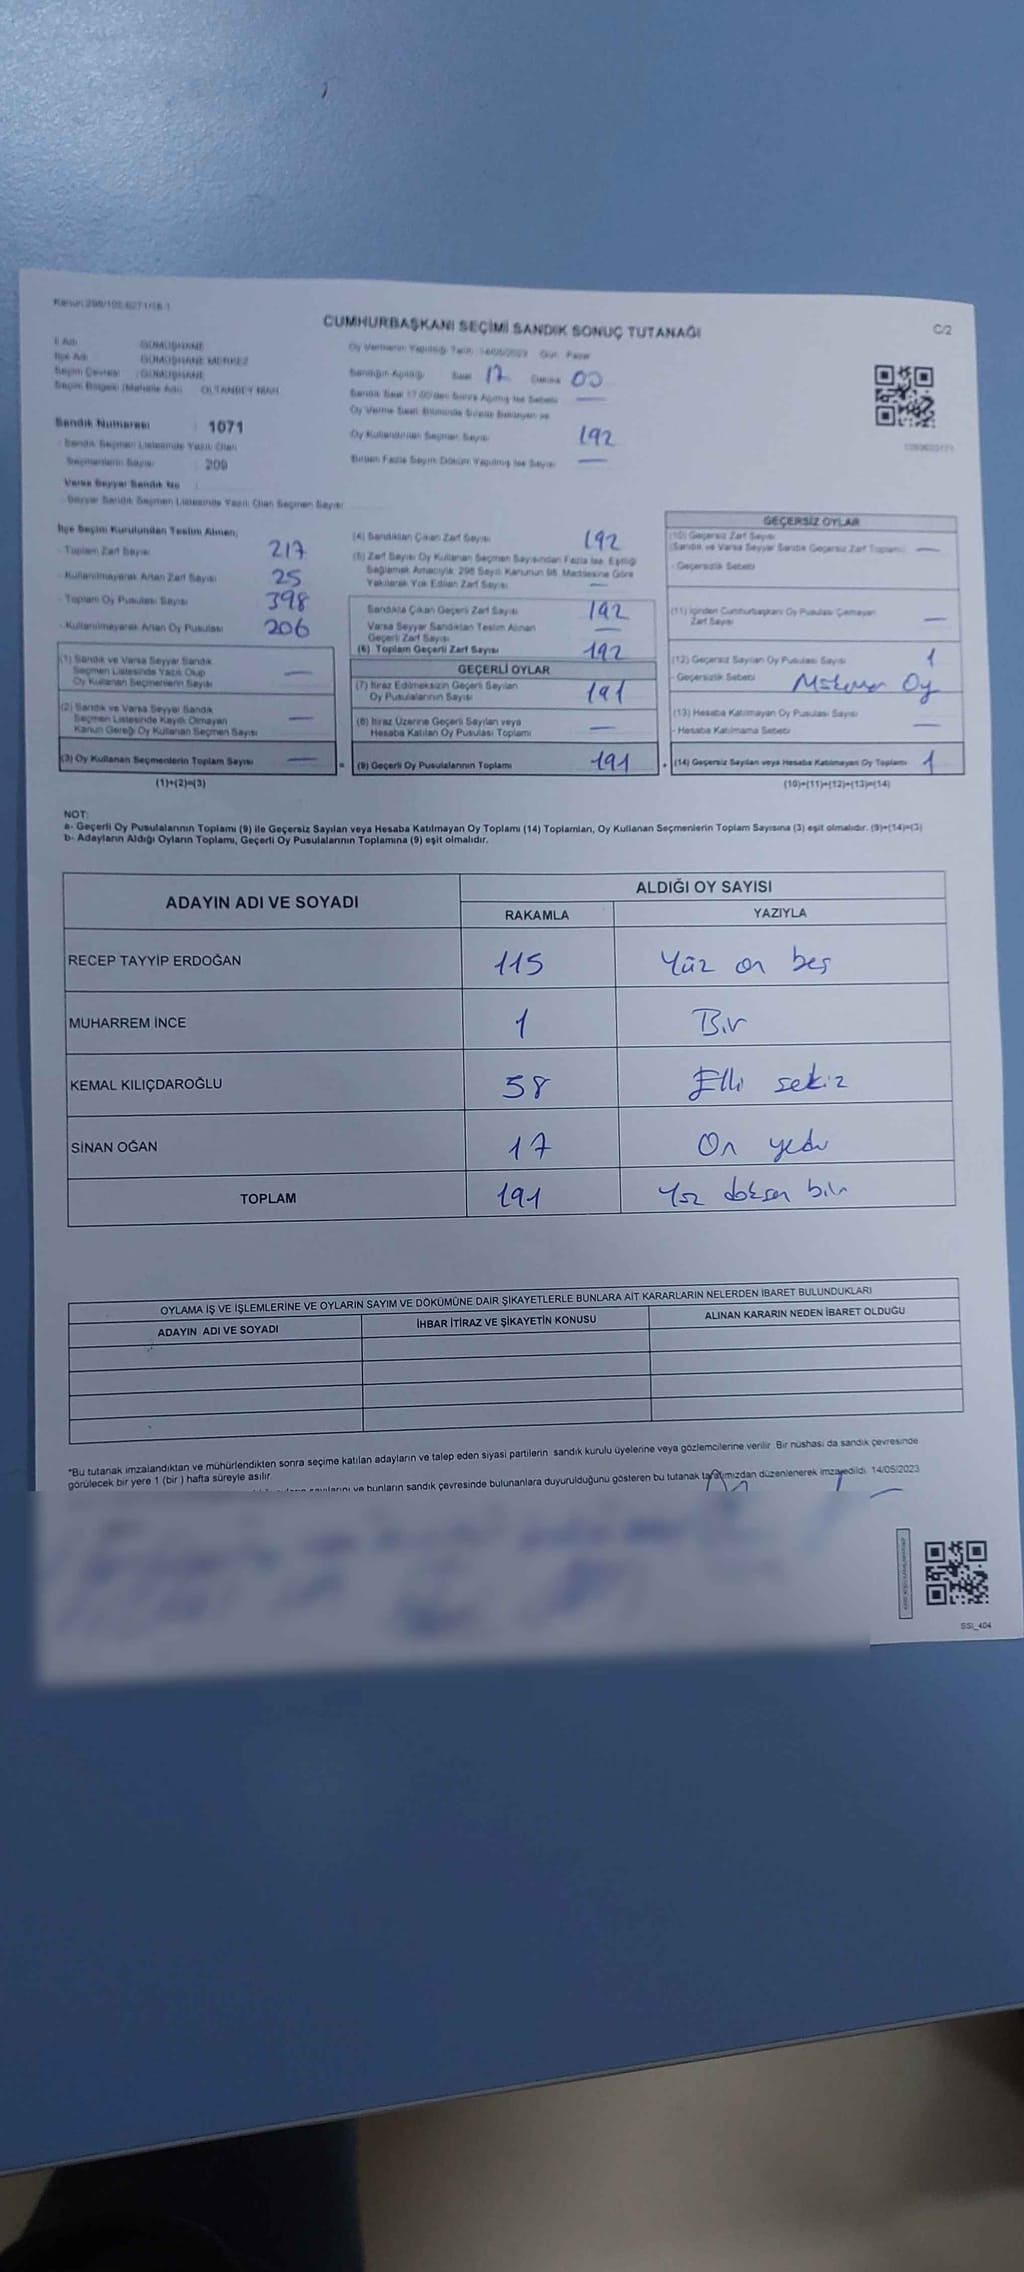 Kanun:298/105,6271/16.1
C/2
CUMHURBAŞKANI SEÇİMİ SANDIK SONUÇ TUTANAĞI
İl Adı : GÜMÜŞHANE
İlçe Adı : GÜMÜŞHANE MERKEZ
Seçim Çevresi : GÜMÜŞHANE
Seçim Bölgesi (Mahalle Adı) : OLTANBEY MAH.
Sandık Numarası : 1071
- Sandık Seçmen Listesinde Yazılı Olan
Seçmenlerin Sayısı : 209
Varsa Seyyar Sandık No :
- Seyyar Sandık Seçmen Listesinde Yazılı Olan Seçmen Sayısı:
Oy Vermenin Yapıldığı Tarih: 14/05/2023 Gün: Pazar
Sandığın Açıldığı Saat: 17 Dakika: 00
Sandık Saat 17.00'den Sonra Açılmış İse Sebebi —
Oy Verme Saati Bitiminde Sırada Bekleyen ve
Oy Kullandırılan Seçmen Sayısı 192
Birden Fazla Sayım Döküm Yapılmış İse Sayısı —
İlçe Seçim Kurulundan Teslim Alınan;
- Toplam Zarf Sayısı 217
- Kullanılmayarak Artan Zarf Sayısı 25
- Toplam Oy Pusulası Sayısı 398
- Kullanılmayarak Artan Oy Pusulası 206
(1) Sandık ve Varsa Seyyar Sandık
Seçmen Listesinde Yazılı Olup
Oy Kullanan Seçmenlerin Sayısı —
(2) Sandık ve Varsa Seyyar Sandık
Seçmen Listesinde Kayıtlı Olmayan
Kanun Gereği Oy Kullanan Seçmen Sayısı —
(3) Oy Kullanan Seçmenlerin Toplam Sayısı —
(1)+(2)=(3)
(4) Sandıktan Çıkan Zarf Sayısı 192
(5) Zarf Sayısı Oy Kullanan Seçmen Sayısından Fazla İse, Eşitliği
Sağlamak Amacıyla; 298 Sayılı Kanunun 98. Maddesine Göre
Yakılarak Yok Edilen Zarf Sayısı —
Sandıkta Çıkan Geçerli Zarf Sayısı 192
Varsa Seyyar Sandıktan Teslim Alınan
Geçerli Zarf Sayısı —
(6) Toplam Geçerli Zarf Sayısı 192
GEÇERLİ OYLAR
(7) İtiraz Edilmeksizin Geçerli Sayılan
Oy Pusulalarının Sayısı 191
(8) İtiraz Üzerine Geçerli Sayılan veya
Hesaba Katılan Oy Pusulası Toplamı —
= (9) Geçerli Oy Pusulalarının Toplamı 191
GEÇERSİZ OYLAR
(10) Geçersiz Zarf Sayısı
(Sandık ve Varsa Seyyar Sandık Geçersiz Zarf Toplamı) —
- Geçersizlik Sebebi
(11) İçinden Cumhurbaşkanı Oy Pusulası Çıkmayan
Zarf Sayısı —
(12) Geçersiz Sayılan Oy Pusulası Sayısı 1
- Geçersizlik Sebebi Oy
(13) Hesaba Katılmayan Oy Pusulası Sayısı —
- Hesaba Katılmama Sebebi
+ (14) Geçersiz Sayılan veya Hesaba Katılmayan Oy Toplamı 1
(10)+(11)+(12)+(13)=(14)
NOT:
a- Geçerli Oy Pusulalarının Toplamı (9) ile Geçersiz Sayılan veya Hesaba Katılmayan Oy Toplamı (14) Toplamları, Oy Kullanan Seçmenlerin Toplam Sayısına (3) eşit olmalıdır. (9)+(14)=(3)
b- Adayların Aldığı Oyların Toplamı, Geçerli Oy Pusulalarının Toplamına (9) eşit olmalıdır.
ADAYIN ADI VE SOYADI ALDIĞI OY SAYISI
RAKAMLA YAZIYLA
RECEP TAYYİP ERDOĞAN 115 Yüz on beş
MUHARREM İNCE 1 Bir
KEMAL KILIÇDAROĞLU 58 Elli sekiz
SİNAN OĞAN 17 On yedi
TOPLAM 191 Yüz doksan bir
OYLAMA İŞ VE İŞLEMLERİNE VE OYLARIN SAYIM VE DÖKÜMÜNE DAİR ŞİKAYETLERLE BUNLARA AİT KARARLARIN NELERDEN İBARET BULUNDUKLARI
ADAYIN ADI VE SOYADI İHBAR İTİRAZ VE ŞİKAYETİN KONUSU ALINAN KARARIN NEDEN İBARET OLDUĞU
*Bu tutanak imzalandıktan ve mühürlendikten sonra seçime katılan adayların ve talep eden siyasi partilerin sandık kurulu üyelerine veya gözlemcilerine verilir. Bir nüshası da sandık çevresinde
görülecek bir yere 1 (bir ) hafta süreyle asılır.
ve bunların sandık çevresinde bulunanlara duyurulduğunu gösteren bu tutanak tarafımızdan düzenlenerek imza edildi. 14/05/2023
SSI_404